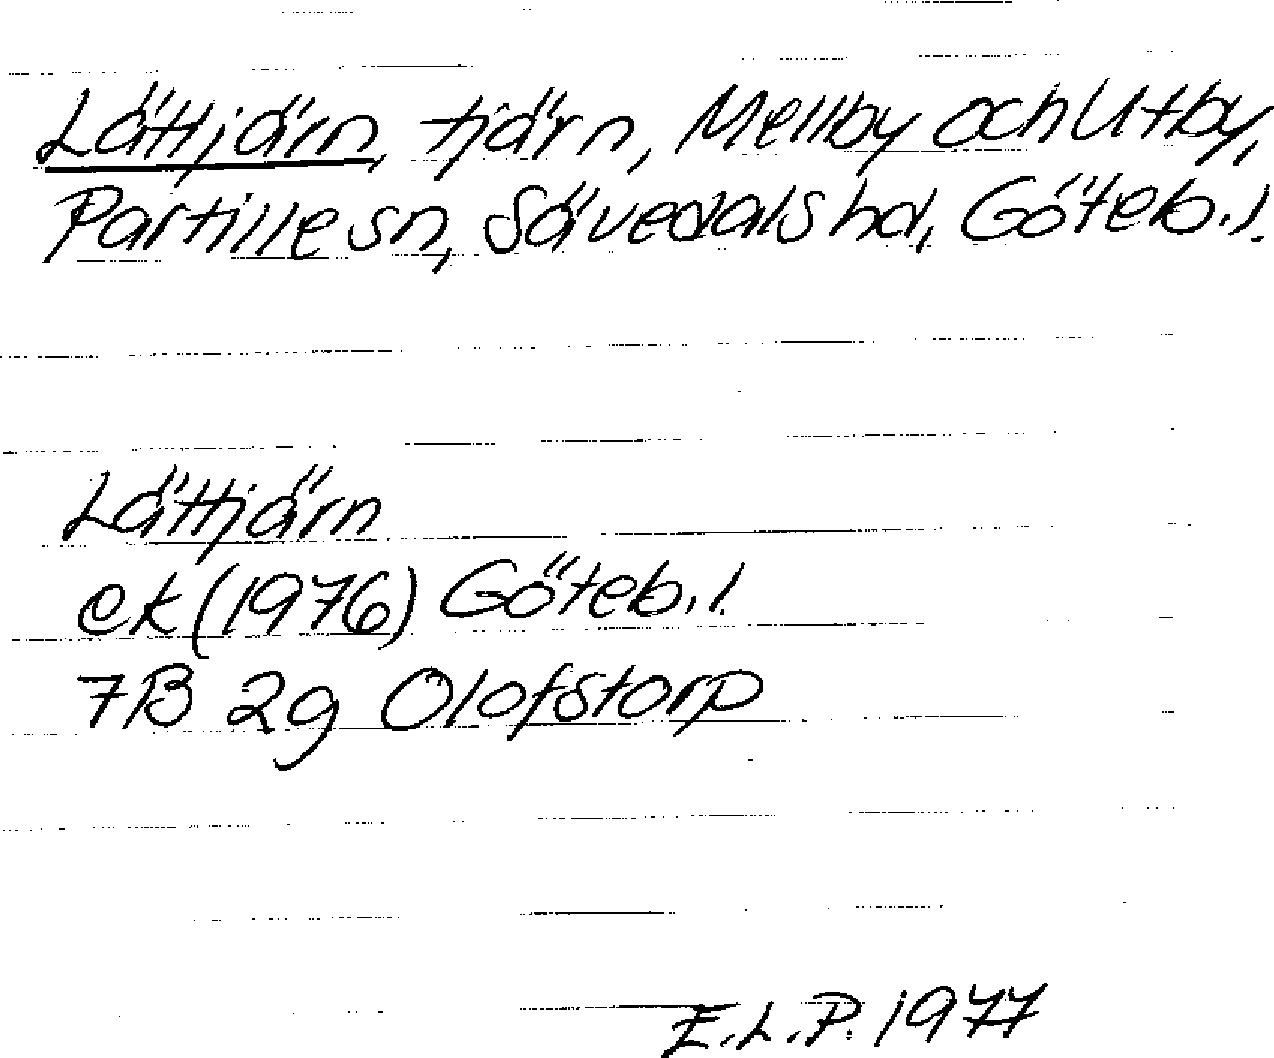 Lättjärn, tjärn, Mellby och Utby,
Partille sn, Sävedals hd, Göteb. l.
Lättjärn
ek (1976) Göteb. l.
7B 2g Olofstorp
E.L.P. 1977